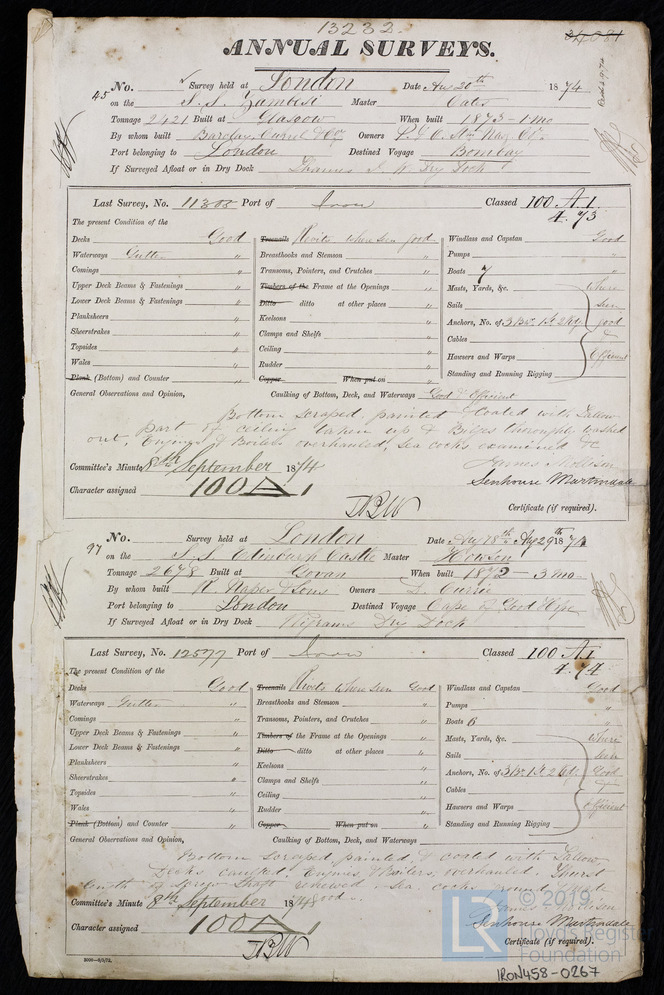 13232
34081
ANNUAL SURVEYS.
45 No. Survey held at London Date Aug 20th 1874
on the S.S. Zambesi Master Oates
Tonnage 2421 Built at Glasgow When built 1873 - 1 mo
By whom built Barclay Curle & Co Owners P & O. Stm Nav. Co
Port belonging to London Destined Voyage Bombay
If Surveyed Afloat or in Dry Dock Thames I. W. Dry Dock
Last Survey, No. 11308 Port of Iron Classed 100 A1.
4.73
The present Condition of the
Decks Good
Waterways Gutter "
Comings "
Upper Deck Beams & Fastenings "
Lower Deck Beams & Fastenings "
Planksheers "
Sheerstrakes "
Topsides "
Wales "
Plank (Bottom) and Counter "
Treenails Rivets where seen good
Breasthooks and Stemson "
Transoms, Pointers, and Crutches "
Timbers of the Frame at the Openings "
Ditto ditto at other places "
Keelsons "
Clamps and Shelfs "
Ceiling "
Rudder "
Copper When put on "
Windlass and Capstan Good
Pumps "
Boats 7 "
Masts, Yards, &c. where
Sails seen
Anchors, No. of 3 Br. 1 St. 2 Kg. good
Cables &
Hawsers and Warps Efficient
Standing and Running Rigging
General Observations and Opinion, Caulking of Bottom, Deck, and Waterways Good & Efficient
Bottom scraped, painted & coated with Tallow
part of ceiling taken up & Bilges thoroughly washed
out, Engines & Boilers overhauled, sea cocks examined &c
Committee's Minute 8th September 1874 James
Character assigned 100 A 1 Senhouse Martindale
Certificate (if required).
97 No. Survey held at London Date Aug 18th Aug 29th 1874
on the S.S. Edinburgh Castle Master Howson
Tonnage 2678 Built at Govan When built 1872 - 3 mo
By whom built R. Napier & Sons Owners D. Currie
Port belonging to London Destined Voyage Cape of Good Hope
If Surveyed Afloat or in Dry Dock Wigrams Dry Dock
Last Survey, No. 12577 Port of Iron Classed 100 A1.
4.74
The present Condition of the
Decks Good
Waterways Gutter "
Comings "
Upper Deck Beams & Fastenings "
Lower Deck Beams & Fastenings "
Planksheers "
Sheerstrakes "
Topsides "
Wales "
Plank (Bottom) and Counter "
Treenails Rivets where seen Good
Breasthooks and Stemson "
Transoms, Pointers, and Crutches "
Timbers of the Frame at the Openings "
Ditto ditto at other places "
Keelsons "
Clamps and Shelfs "
Ceiling "
Rudder "
Copper When put on "
Windlass and Capstan Good
Pumps "
Boats 6 "
Masts, Yards, &c. where
Sails seen
Anchors, No. of 3 Br. 1 St. 2 Kg. Good
Cables &
Hawsers and Warps Efficient
Standing and Running Rigging
General Observations and Opinion, Caulking of Bottom, Deck, and Waterways
Bottom scraped, painted & coated with Tallow
Decks caulked, Engines & Boilers overhauled. Thurst
length of Screw Shaft renewed. Sea cocks found
good
Committee's Minute 8th September 1874 James
Character assigned 100 A 1 Senhouse Martindale
Certificate (if required).
© 2019
LR Lloyd's Register
Foundation
IRON458-0267